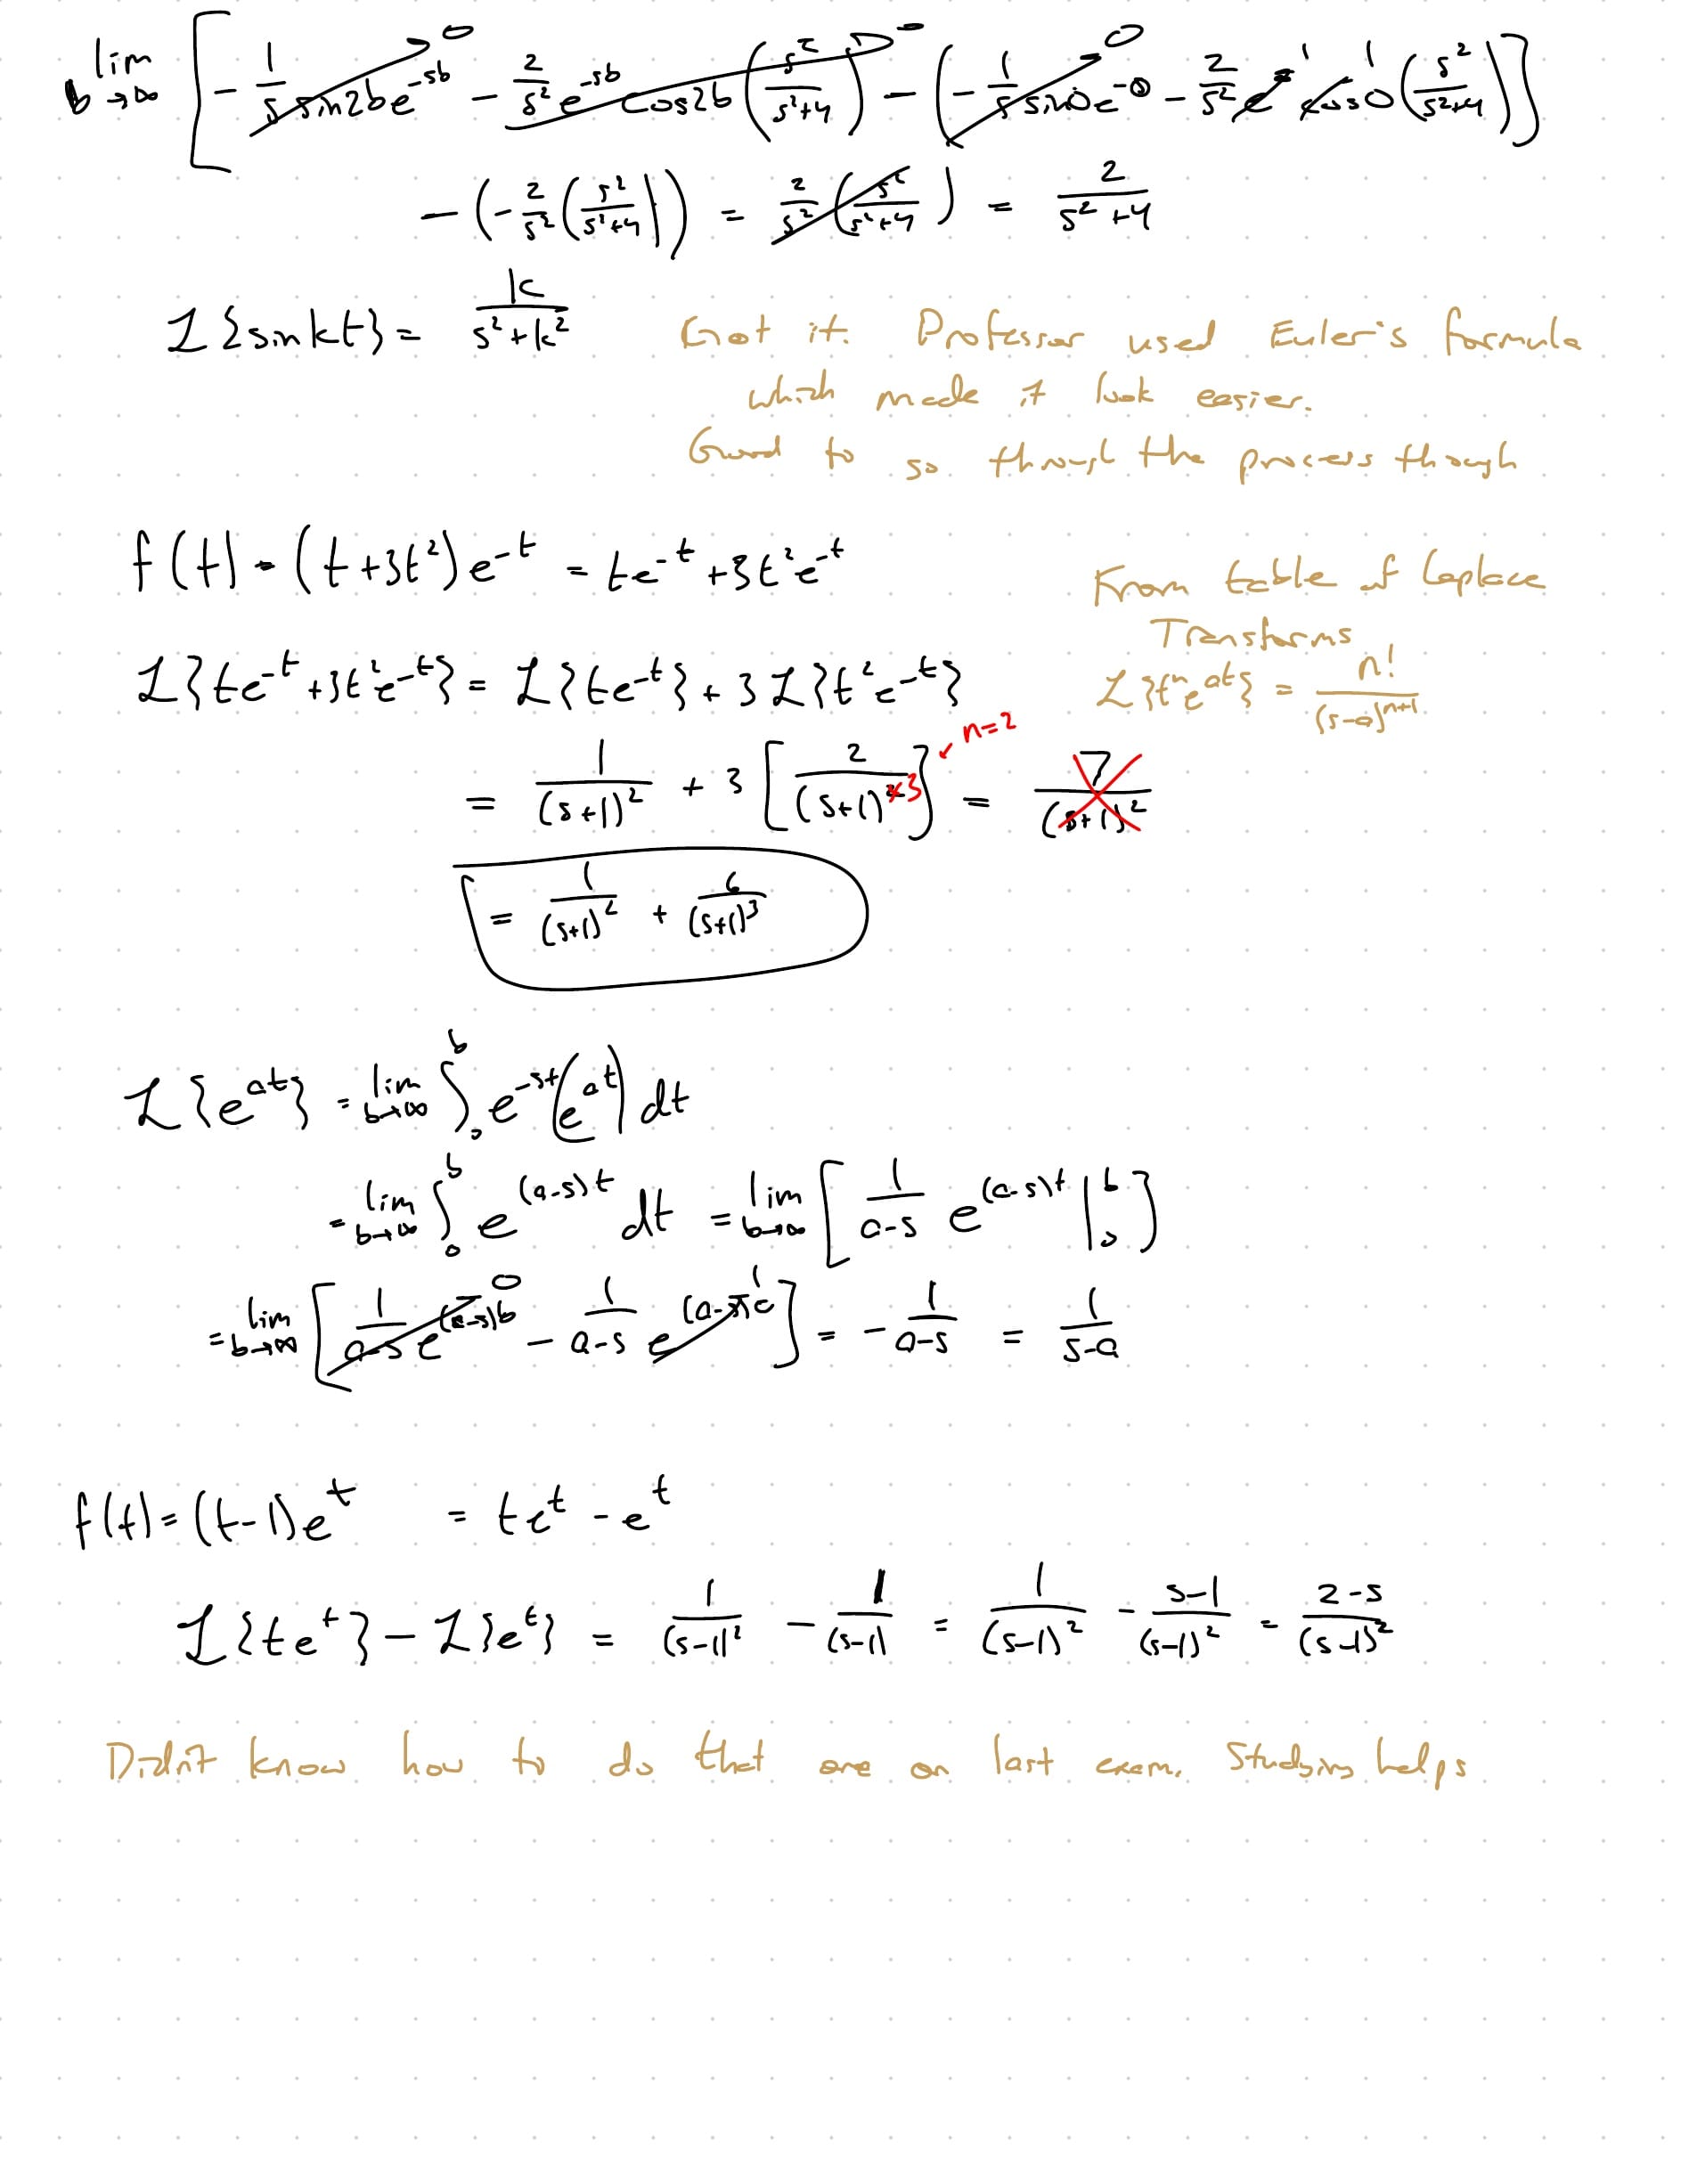 lim b→∞ [ -1/s sin2be^-sb - 2/s² e^-sb cos2b (s²/(s²+4)) - ( -1/s sin0e^-0 - 2/s² e cos0 (s²/(s²+4)) ) ]
-(-2/s² (s²/(s²+4))) = 2/s² (s²/(s²+4)) = 2/(s²+4)
ℒ{sinkt} = k/(s²+k²)
Got it. Professor used Euler's formula
which made it look easier.
Good to go through the process though
f(t) = (t+3t²)e^-t = te^-t + 3t²e^-t
From table of Laplace
Transforms
ℒ{t^n e^at} = n!/(s-a)^(n+1)
ℒ{te^-t + 3t²e^-t} = ℒ{te^-t} + 3ℒ{t²e^-t}
n=2
= 1/(s+1)² + 3[2/(s+1)^3] = 7/(s+1)²
= 1/(s+1)² + 6/(s+1)³
ℒ{e^at} = lim b→∞ ∫₀^b e^-st (e^at) dt
= lim b→∞ ∫₀^b e^(a-s)t dt = lim b→∞ [ 1/(a-s) e^(a-s)t |₀^b ]
= lim b→∞ [ 1/(a-s) e^(a-s)b - 1/(a-s) e^(a-s)0 ] = -1/(a-s) = 1/(s-a)
f(t) = (t-1)e^t = te^t - e^t
ℒ{te^t} - ℒ{e^t} = 1/(s-1)² - 1/(s-1) = 1/(s-1)² - (s-1)/(s-1)² = (2-s)/(s-1)²
Didn't know how to do that one on last exam. Studying helps